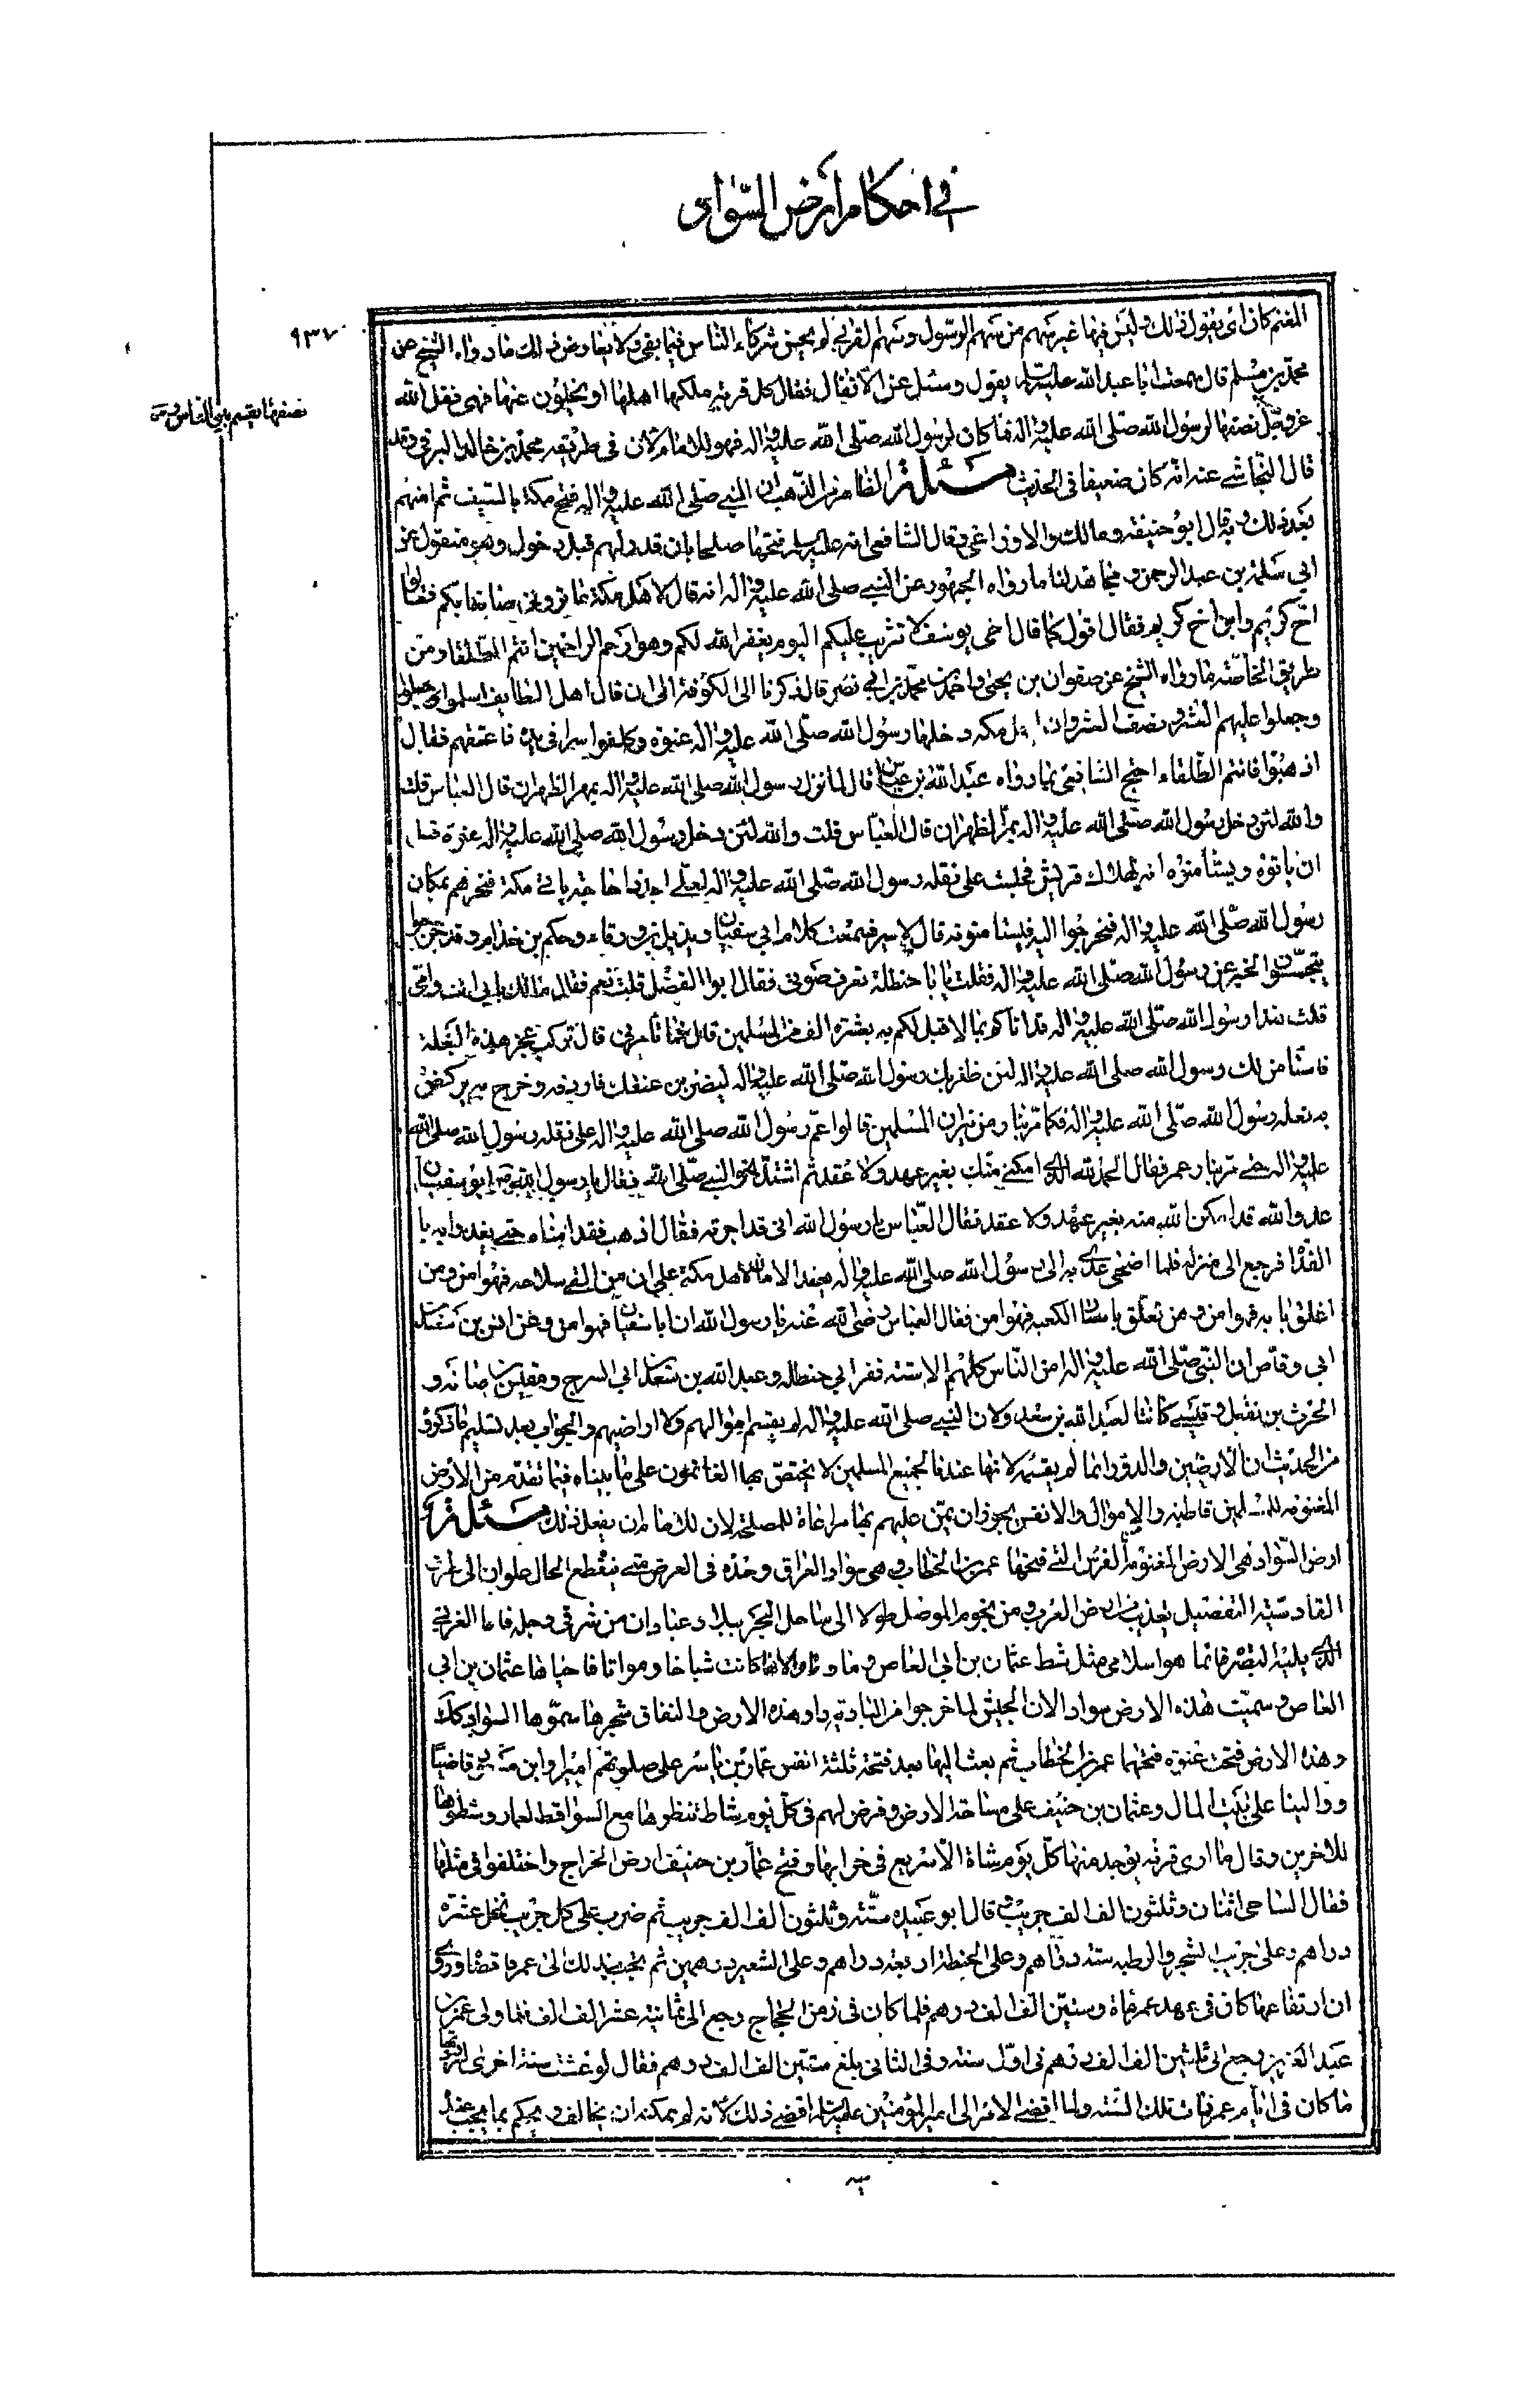 في احكام ارض السواد
٩٣٧
نصفها يقسم بين الناس و
المغنم كان ابى يقول ذلك وليس فيها غير سهمين سهم الرسول وسهم القربى ثم نحن شركاء الناس فيما بقى ولا يعارض ذلك ما رواه الشيخ عن
محمد بن مسلم قال سمعت ابا عبد الله عليه السلم يقول وسئل عن الانفال فقال كل قرية ملكها اهلها او يجلون عنها فهى نفل الله
عز وجل نصفها لرسول الله صلى الله عليه واله فما كان لرسول الله صلى الله عليه واله فهو للامام لان فى طريقه محمد بن خالد البرقى وقد
قال النجاشى عنه انه كان ضعيفا فى الحديث مسئلة الظاهر من المذهب ان النبى صلى الله عليه واله فتح مكة بالسيف ثم امنهم
بعد ذلك وبه قال ابو حنيفة ومالك والاوزاعى وقال الشافعى انه عليه السلم فتحها صلحا بامان قدمه لهم قبل دخوله وهو منقول عن
ابى سلمة بن عبد الرحمن ومجاهد لنا ما رواه الجمهور عن النبى صلى الله عليه واله انه قال لاهل مكة ما ترونى صانعا بكم فقالوا
اخ كريم وابن اخ كريم فقال اقول كما قال اخى يوسف لا تثريب عليكم اليوم يغفر الله لكم وهو ارحم الراحمين انتم الطلقاء ومن
طريق الخاصة ما رواه الشيخ عن صفوان بن يحيى واحمد بن محمد بن ابى نصر قال ذكرنا الى الكوفة الى ان قال اهل الطايف اسلموا وجعلوا
وجعلوا عليهم العشر ونصف العشر وان اهل مكة دخلها رسول الله صلى الله عليه واله عنوة وكانوا اسراء فى يده فاعتقهم فقال
اذهبوا فانتم الطلقاء احتج الشافعى بما رواه عبد الله بن عباس قال لما نزل رسول الله صلى الله عليه واله بمر الظهران قال العباس قلت
والله لئن دخل رسول الله صلى الله عليه واله بمر الظهران قال العباس قلت والله لئن دخل رسول الله صلى الله عليه واله عنوة قبل
ان ياتوه ويستأمنوه انه لهلاك قريش فجلست على بغلة رسول الله صلى الله عليه واله لعلى اجد ذا حاجة ياتى مكة فيخبرهم بمكان
رسول الله صلى الله عليه واله فيخرجوا اليه فيستامنونه قال لاسير فسمعت كلام ابى سفيان وبديل بن ورقاء وحكيم بن حزام وقد خرجوا
يتجسسون الخبر عن رسول الله صلى الله عليه واله فقلت يا ابا حنظلة تعرف صوتى فقال ابو الفضل قلت نعم فقال مالك بابى انت وامى
قلت هذا رسول الله صلى الله عليه واله قد اتاكم بما لا قبل لكم به بعشرة الف من المسلمين قال فما تامرنى قال تركب عجز هذه البغلة
فاستامن لك رسول الله صلى الله عليه واله لئن ظفر بك رسول الله صلى الله عليه واله ليضربن عنقك فاردفه وخرج به يركض
به بغلة رسول الله صلى الله عليه واله فكلما مر بنار من نيران المسلمين قالوا عم رسول الله صلى الله عليه واله على بغلة رسول الله صلى الله
عليه واله حتى مر بنار عمر فقال الحمد لله الذى امكننى منك بغير عهد ولا عقد ثم اشتد نحو النبى صلى الله فقال يا رسول الله ابو سفيان
عدو الله قد امكن الله منه بغير عهد ولا عقد فقال العباس يا رسول الله انى قد اجرته فقال اذهب فقد امناه حتى يغدو به يا
الغداة فرجع الى منزله فلما اضحى غدا به الى رسول الله صلى الله عليه واله بعقد الامان لاهل مكة على ان من القى سلاحه فهو امن ومن
اغلق بابه فهو امن ومن تعلق باستار الكعبة فهو امن فقال العباس رضى الله عنه يا رسول الله ان ابا سفيان فهو امن وعن انس بن سعد بن
ابى وقاص ان النبى صلى الله عليه واله امن الناس كلهم الا ستة نفر ابى حنظلة وعبد الله بن سعد بن ابى السرح ومقيس بن ضبابة و
الحرث بن نفيل وقينتين كانتا لعبد الله بن سعد ولان النبى صلى الله عليه واله لم يقسم اموالهم ولا اراضيهم والجواب بعد تسليم ما ذكروه
من الحديث ان الارضين والدور انما لم يقسمه لانها عندنا لجميع المسلمين لا يختص بها الغانمون على ما بيناه فيما تقدم من الارض
المغنومة للمسلمين قاطبة والاموال والانفس يجوز ان يمن عليهم بها مراعاة للمصلحة لان للامام ان يفعل ذلك مسئلة
ارض السواد هى الارض المغنومة من الفرس التى فتحها عمر بن الخطاب وهى سواد العراق وحده فى العرض من منقطع الجبال حلوان الى طرف
القادسية المتصل بعذيب من ارض العرب ومن تخوم الموصل طولا الى ساحل البحر ببلاد عبادان من شرقى دجلة فاما الغربى
الذى يليه البصرة فانما هو اسلامى مثل شط عثمان بن ابى العاص وما والاها كانت سباخا ومواتا فاحياها عثمان بن ابى
العاص وسميت هذه الارض سوادا لان الجيش لما خرجوا من البادية راوا هذه الارض والتفاف شجرها سموها السواد لذلك
وهذه الارض فتحت عنوة فتحها عمر بن الخطاب ثم بعث اليها بعد فتحه ثلثة انفس عمار بن ياسر على صلوتهم اميرا وابن مسعود قاضيا
وواليا على بيت المال وعثمان بن حنيف على مساحة الارض وفرض لهم فى كل يوم شاة شطرها مع السواقط لعمار وشطرها
للاخرين وقال ما ارى قرية يوجد منها كل يوم شاة الا سريع فى خرابها وفتح عثمان بن حنيف ارض الخراج واختلفوا فى مبلغها
فقال الساجى اثنان وثلثون الف الف جريب قال ابو عبيدة ستة وثلثون الف الف جريب ثم ضرب على كل جريب نخل عشرة
دراهم وعلى جريب الشجر والرطبة ستة دراهم وعلى الحنطة اربعة دراهم وعلى الشعير درهمين ثم كتب بذلك الى عمر فامضاه وروى
ان ارتفاعها كان فى عهد عمر مائة وستين الف الف درهم فلما كان فى زمن الحجاج رجع الى ثمانية عشر الف الف فلما ولى عمر بن
عبد العزيز رجع الى ثلثين الف الف درهم فى اول سنة وفى الثانى بلغ ستين الف الف درهم فقال لو عشت سنة اخرى لرددتها
ما كان فى ايام عمر فمات تلك السنة ولما افضى الامر الى امير المؤمنين عليه السلم امضى ذلك لانه لم يمكنه ان يخالف ويحكم بما يجب عنده